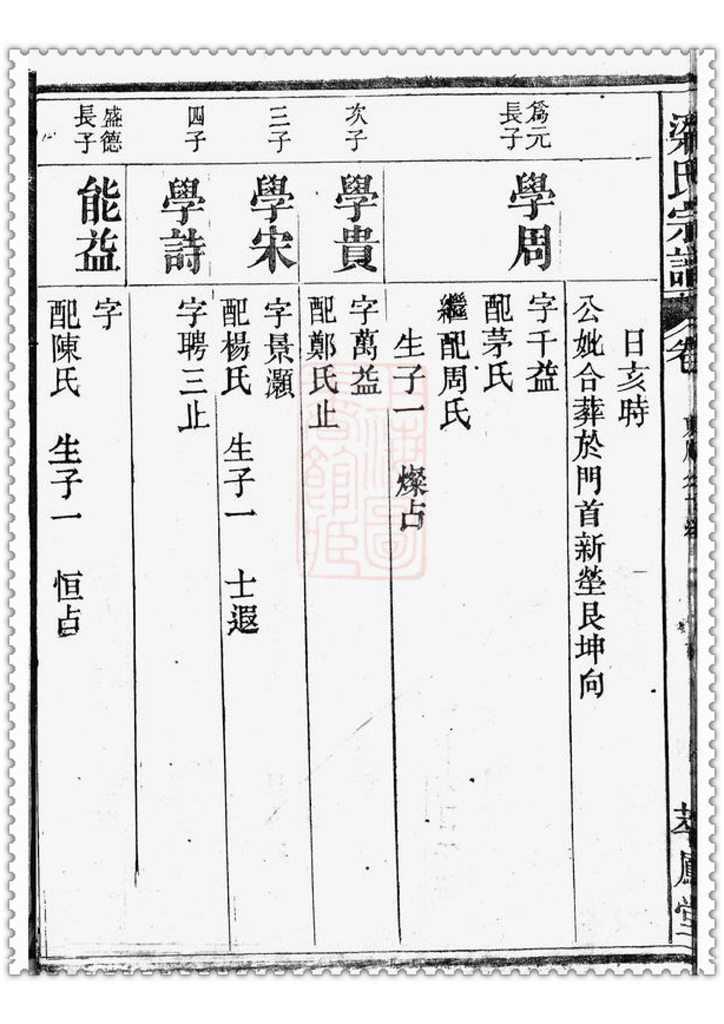 梁氏宗譜
卷
日亥時
公妣合葬於門首新塋艮坤向
爲元
長子
學周
字千益
配茅氏
繼配周氏
生子一 燦占
次子
學貴
字萬益
配鄭氏止
三子
學宋
字景灝
配楊氏 生子一 士遐
四子
學詩
字聘三止
盛德
長子
能益
字
配陳氏 生子一 恒占